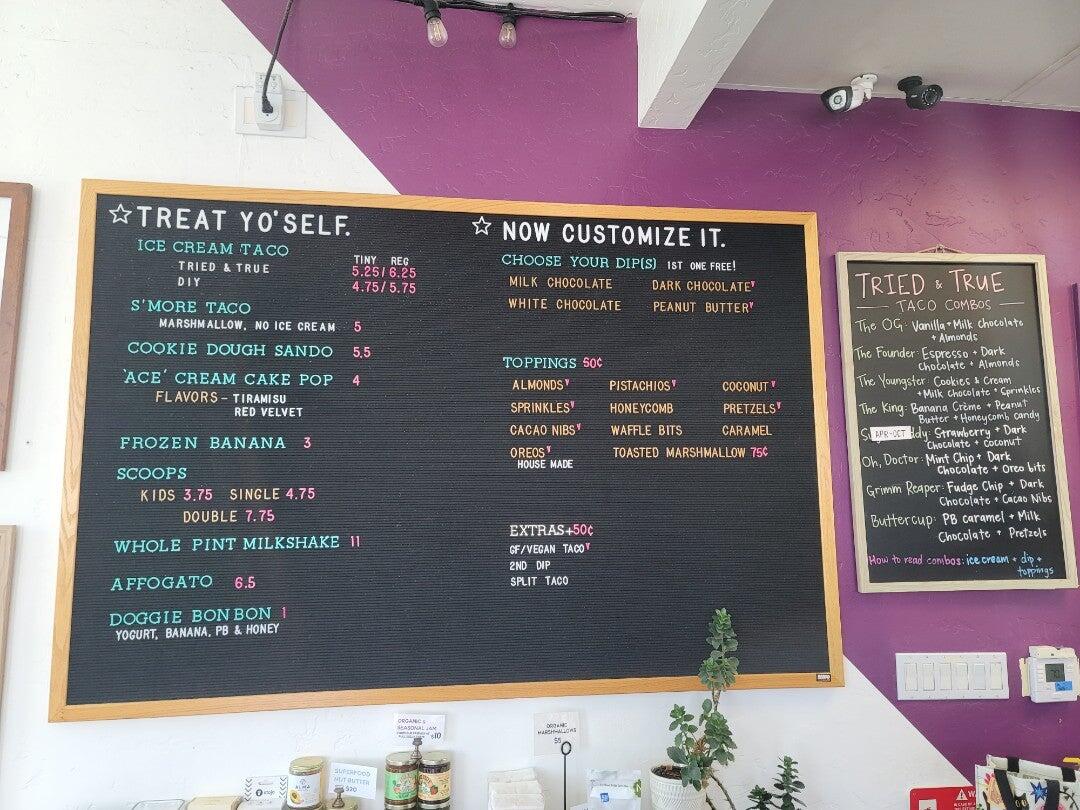 ☆TREAT YO'SELF.
ICE CREAM TACO
TINY REG
TRIED & TRUE 5.25/6.25
DIY 4.75/5.75
S'MORE TACO
MARSHMALLOW, NO ICE CREAM 5
COOKIE DOUGH SANDO 5.5
'ACE' CREAM CAKE POP 4
FLAVORS - TIRAMISU
RED VELVET
FROZEN BANANA 3
SCOOPS
KIDS 3.75 SINGLE 4.75
DOUBLE 7.75
WHOLE PINT MILKSHAKE 11
AFFOGATO 6.5
DOGGIE BON BON 1
YOGURT, BANANA, PB & HONEY
☆ NOW CUSTOMIZE IT.
CHOOSE YOUR DIP(S) 1ST ONE FREE!
MILK CHOCOLATE DARK CHOCOLATEᵛ
WHITE CHOCOLATE PEANUT BUTTERᵛ
TOPPINGS 50¢
ALMONDSᵛ PISTACHIOSᵛ COCONUTᵛ
SPRINKLESᵛ HONEYCOMB PRETZELSᵛ
CACAO NIBSᵛ WAFFLE BITS CARAMEL
OREOSᵛ TOASTED MARSHMALLOW 75¢
HOUSE MADE
EXTRAS+50¢
GF/VEGAN TACOᵛ
2ND DIP
SPLIT TACO
TRIED & TRUE
TACO COMBOS
The OG: Vanilla + Milk chocolate
+ Almonds
The Founder: Espresso + Dark
Chocolate + Almonds
The Youngster: Cookies & Cream
+ Milk Chocolate + Sprinkles
The King: Banana Crème + Peanut
Butter + Honeycomb Candy
APR-OCT ddy: Strawberry + Dark
Chocolate + Coconut
Oh, Doctor: Mint Chip + Dark
Chocolate + Oreo bits
Grimm Reaper: Fudge Chip + Dark
Chocolate + Cacao Nibs
Buttercup: PB caramel + Milk
Chocolate + Pretzels
How to read combos: ice cream + dip +
toppings
ORGANIC &
SEASONAL JAM
$10
ORGANIC
MARSHMALLOWS
$5
SUPERFOOD
NUT BUTTER
$20